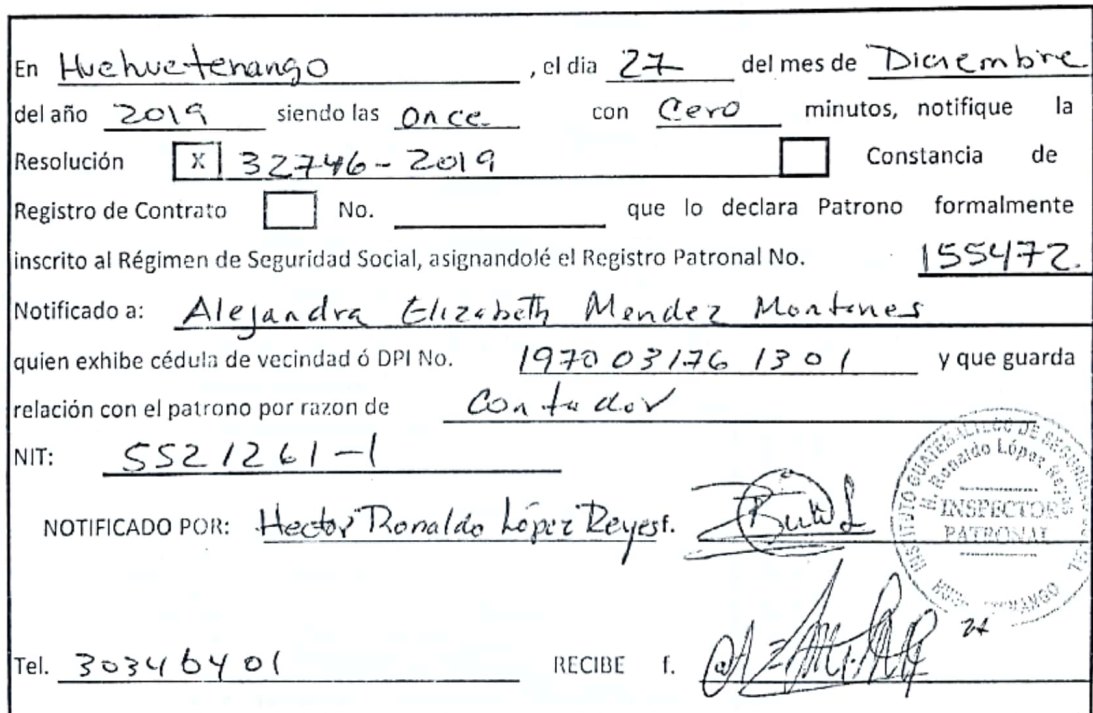 En Huehuetenango, el dia 27 del mes de Diciembre
del año 2019 siendo las once con Cero minutos, notifique la
Resolución X 32746-2019 Constancia de
Registro de Contrato No. que lo declara Patrono formalmente
inscrito al Régimen de Seguridad Social, asignandolé el Registro Patronal No. 155472.
Notificado a: Alejandra Elizabeth Mendez
quien exhibe cédula de vecindad ó DPI No. 1970 03176 1301 y que guarda
relación con el patrono por razon de Contador
NIT: 5521261-1
NOTIFICADO POR: Hector Ronaldo López Reyes f.
INSTITUTO GUATEMALTECO DE SEGURIDAD SOCIAL
H. Ronaldo López Reyes
INSPECTOR
PATRONAL
HUEHUETENANGO
Tel. 30346401 RECIBE f.